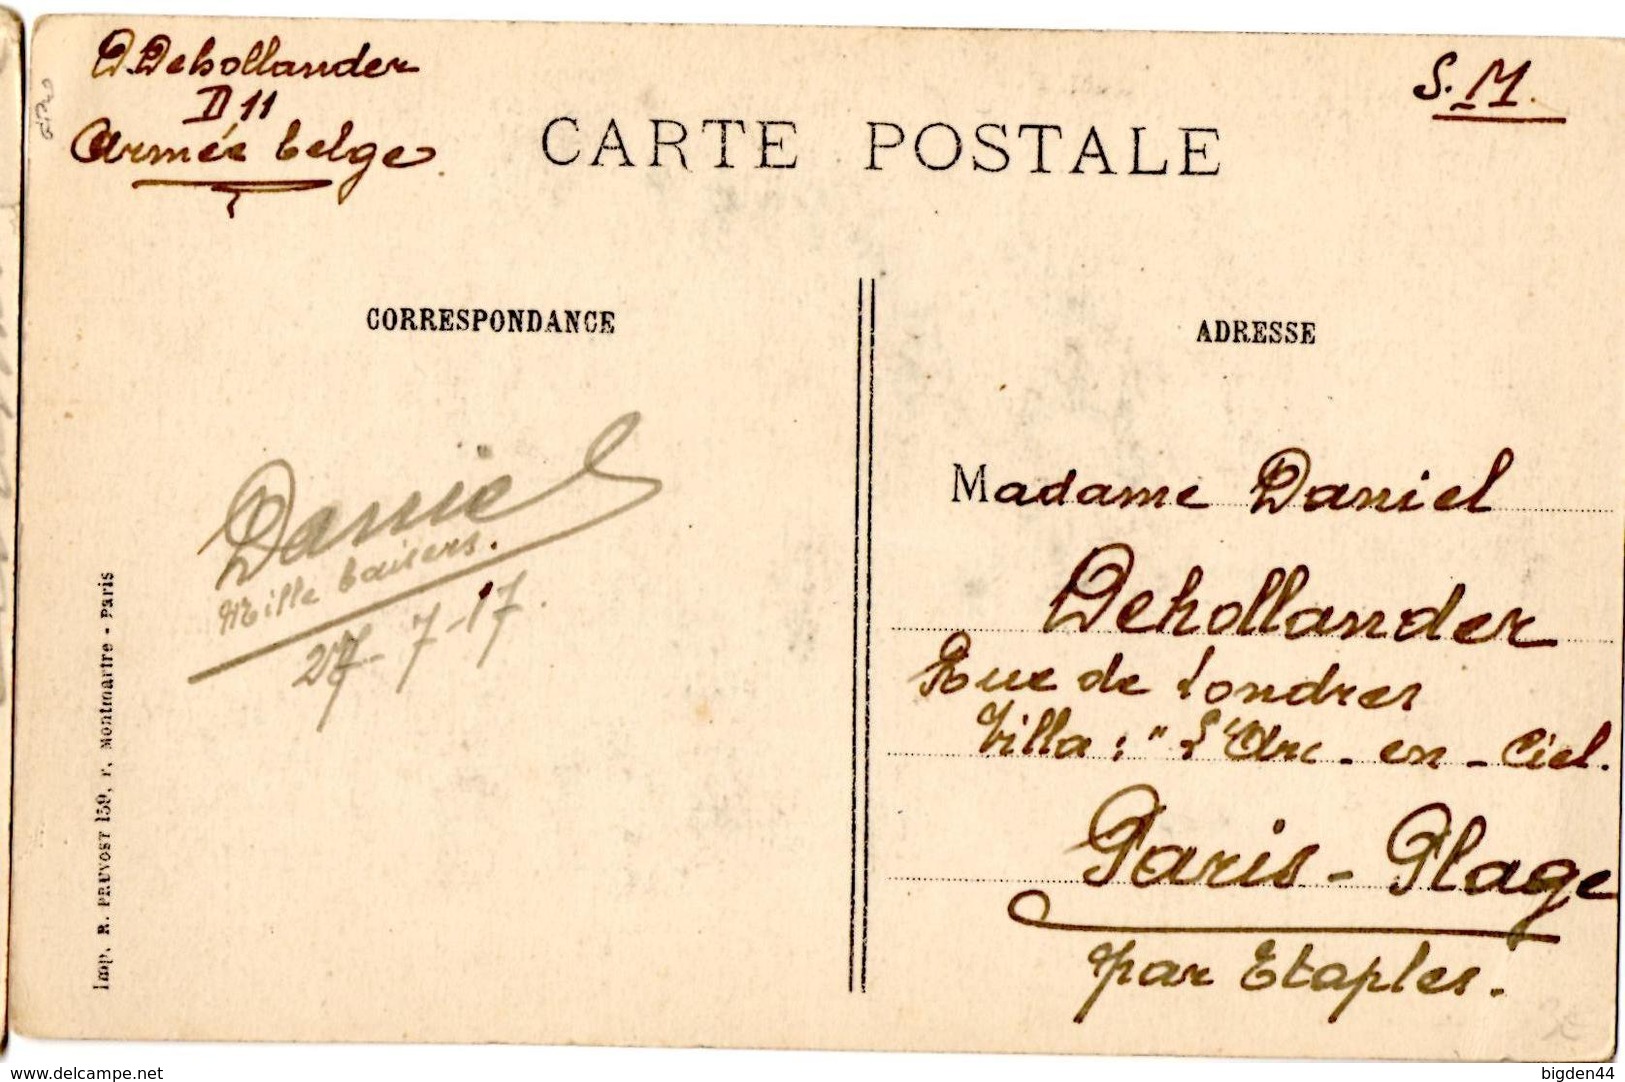 D. Dehollander
D 11
Armée belge.
S. M.
CARTE POSTALE
CORRESPONDANCE
ADRESSE
Daniel
Mille baisers.
27-7-17.
Madame Daniel
Dehollander
Rue de Londres
Villa : " L'Arc - en - Ciel.
Paris - Plage
par Etaples.
Imp. R. PRUVOST 159, r. Montmartre - Paris
www.delcampe.net
bigden44